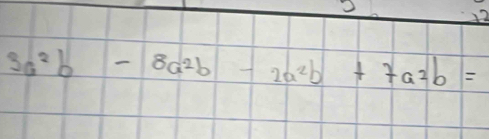 3a²b - 8a²b - 2a²b + 7a²b =